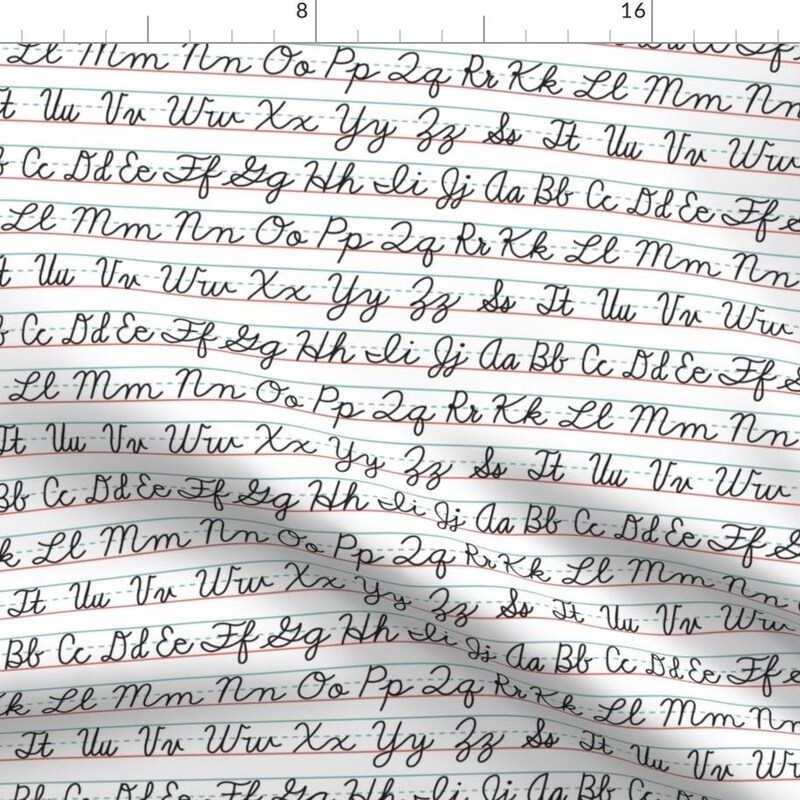 8 16
Ll Mm Nn Oo Pp Qq Rr Kk Ll Mm Nn
Uu Vv Ww Xx Yy Zz Ss Tt Uu Vv Ww
Cc Dd Ee Ff Gg Hh Ii Jj Aa Bb Cc Dd Ee Ff
Ll Mm Nn Oo Pp Qq Rr Kk Ll Mm Nn
Uu Vv Ww Xx Yy Zz Ss Tt Uu Vv Ww
Cc Dd Ee Ff Gg Hh Ii Jj Aa Bb Cc Dd Ee Ff
Ll Mm Nn Oo Pp Qq Rr Kk Ll Mm Nn
Tt Uu Vv Ww Xx Yy Zz Ss Tt Uu Vv Ww
Bb Cc Dd Ee Ff Gg Hh Ii Jj Aa Bb Cc Dd Ee Ff
k Ll Mm Nn Oo Pp Qq Rr Kk Ll Mm Nn
Tt Uu Vv Ww Xx Yy Zz Ss Tt Uu Vv Ww
Bb Cc Dd Ee Ff Gg Hh Ii Jj Aa Bb Cc Dd Ee Ff
k Ll Mm Nn Oo Pp Qq Rr Kk Ll Mm Nn
Tt Uu Vv Ww Xx Yy Zz Ss Tt Uu Vv
Bb Cc Dd Ee Ff Gg Hh Ii Jj Aa Bb Cc